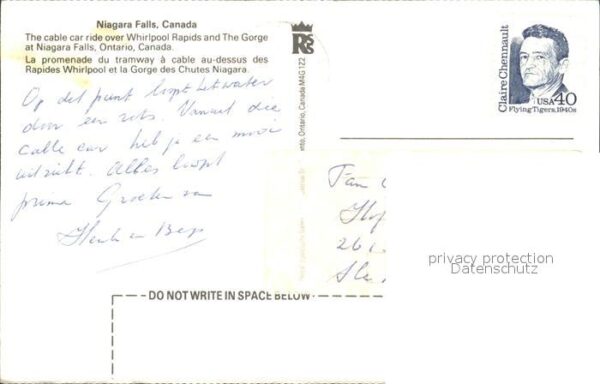 Niagara Falls, Canada
The cable car ride over Whirlpool Rapids and The Gorge
at Niagara Falls, Ontario, Canada.
La promenade du tramway à cable au-dessus des
Rapides Whirlpool et la Gorge des Chutes Niagara.
Op dit punt loopt het water
door een rots. Vanuit deze
calle car heb je een mooi
uitzicht. Alles loopt
prima Groeten van
Henk en Beps
ento, Ontario, Canada M4G 1Z2
Claire Chennault
USA 40
Flying Tigers, 1940s
Fam
26
privacy protection
Datenschutz
DO NOT WRITE IN SPACE BELOW